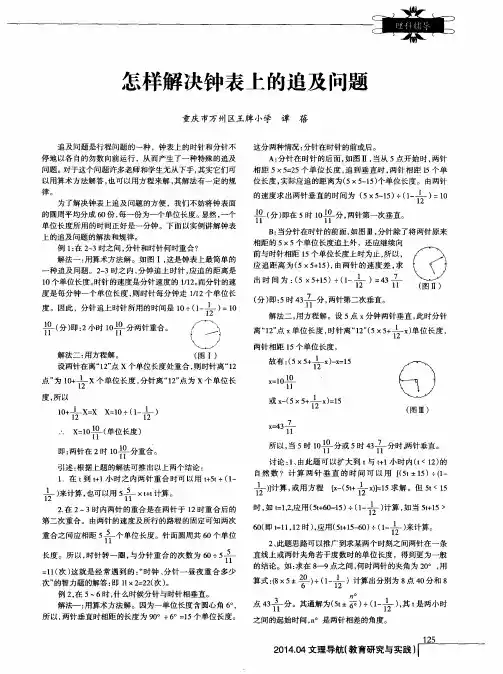 理科辅导
怎样解决钟表上的追及问题
重庆市万州区王牌小学 谭 蓓
追及问题是行程问题的一种，钟表上的时针和分针不
停地以各自的匀数向前运行，从而产生了一种特殊的追及
问题。对于这个问题许多老师和学生无从下手，其实它们可
以用算术方法解答，也可以用方程来解，其解法有一定的规
律。
为了解决钟表上追及问题的方便，我们不妨将钟表面
的圆周平均分成60份，每一份为一个单位长度。显然，一个
单位长度所用的时间正好是一分钟。下面以实例讲解钟表
上的追及问题的解法和规律。
例1：在2~3时之间，分针和时针何时重合？
解法一：用算术方法解。如图Ⅰ，这是钟表上最简单的
一种追及问题。2~3时之内，分钟追上时针，应追的距离是
10个单位长度，时针的速度是分针速度的1/12，而分针的速
度是每分钟一个单位长度，则时针每分钟走1/12个单位长
度。因此，分针追上时针所用的时间是10÷(1-1/12)=10
10/11(分)即：2小时10 10/11分两针重合。
解法二：用方程解。 (图Ⅰ)
设两针在离“12”点X个单位长度处重合，则时针离“12
点”为10+1/12X个单位长度，分针离“12”点为X个单位长
度，所以
10+1/12X=X X=10÷(1-1/12)
∴ X=10 10/11(单位长度)
即：两针在2时10 10/11分重合。
引述：根据上题的解法可推出以上两个结论：
1. 在t到t+1小时之内两针重合时可以用t+5t÷(1-
1/12)来计算，也可以用5 5/11×t=t计算。
2.在2~3时内两针的重合是在两针于12时重合后的
第二次重合。由两针的速度及所行的路程的固定可知两次
重合之间应相距5 5/11个单位长度。针面圆周共60个单位
长度。所以，时针转一圈，与分针重合的次数为60÷5 5/11
=11(次)这就是经常遇到的：“时钟、分针一昼夜重合多少
次”的智力题的解答：即11×2=22(次)。
例2，在5~6时，什么时候分针与时针相垂直。
解法一：用算术方法解。因为一单位长度含圆心角6°，
所以，两针垂直时相距的长度为90°÷6°=15个单位长度。
这分两种情况：分针在时针的前或后。
A：分针在时针的后面，如图Ⅱ，当从5点开始时，两针
相距5×5=25个单位长度，追到垂直时，两针相距15个单
位长度，实际应追的距离为(5×5-15)个单位长度。由两针
的速度求出两针垂直的时间为 (5×5-15)÷(1-1/12)=10
10/11(分)即在5时10 10/11分，两针第一次垂直。
B：当分针在时针的前面，如图Ⅲ，分针除了将两针原来
相距的5×5个单位长度追上外，还应继续向
前与时针相距15个单位长度上时为止，所以，
应追距离为(5×5+15)，由两针的速度差，求
出时间为：(5×5+15)÷(1-1/12)=43 7/11 (图Ⅱ)
(分)即：5时43 7/11分，两针第二次垂直。
解法二，用方程解。设5点x分钟两针垂直，此时分针
离“12”点x单位长度，时针离“12”(5×5+1/12x)单位长度，
两针相距15个单位长度，
故有：(5×5+1/12x)-x=15
x=10 10/11
或x-(5×5+1/12x)=15
(图Ⅲ)
x=43 7/11
所以，当5时10 10/11分或5时43 7/11分时，两针垂直。
讨论：1、由此题可以扩大到t与t+1小时内(t<12)的
自然数？计算两针垂直的时间可以用 [(5t±15)÷(1-
1/12)]计算，或用方程 [x-(5t+1/12x)]=15求解。但5t<15
时，如t=1,2，应用(5t+60-15)÷(1-1/12)计算，如当5t+15>
60(即t=11,12时)，应用(5t+15-60)÷(1-1/12)来计算。
2、此题思路可以推广到求某两个时刻之间两针在一条
直线上或两针夹角若干度数时的单位长度，得到更为一般
的结论。如：求在8—9点之间，何时两针的夹角为20°，用
算式：(8×5±20/6)÷(1-1/12) 计算出分别为8点40分和8
点43 3/11分。其通解为(5t±n°/6°)÷(1-1/12)，其t是两小时
之间的起始时间，n°是两针相差的角度。
125
2014.04 文理导航(教育研究与实践)